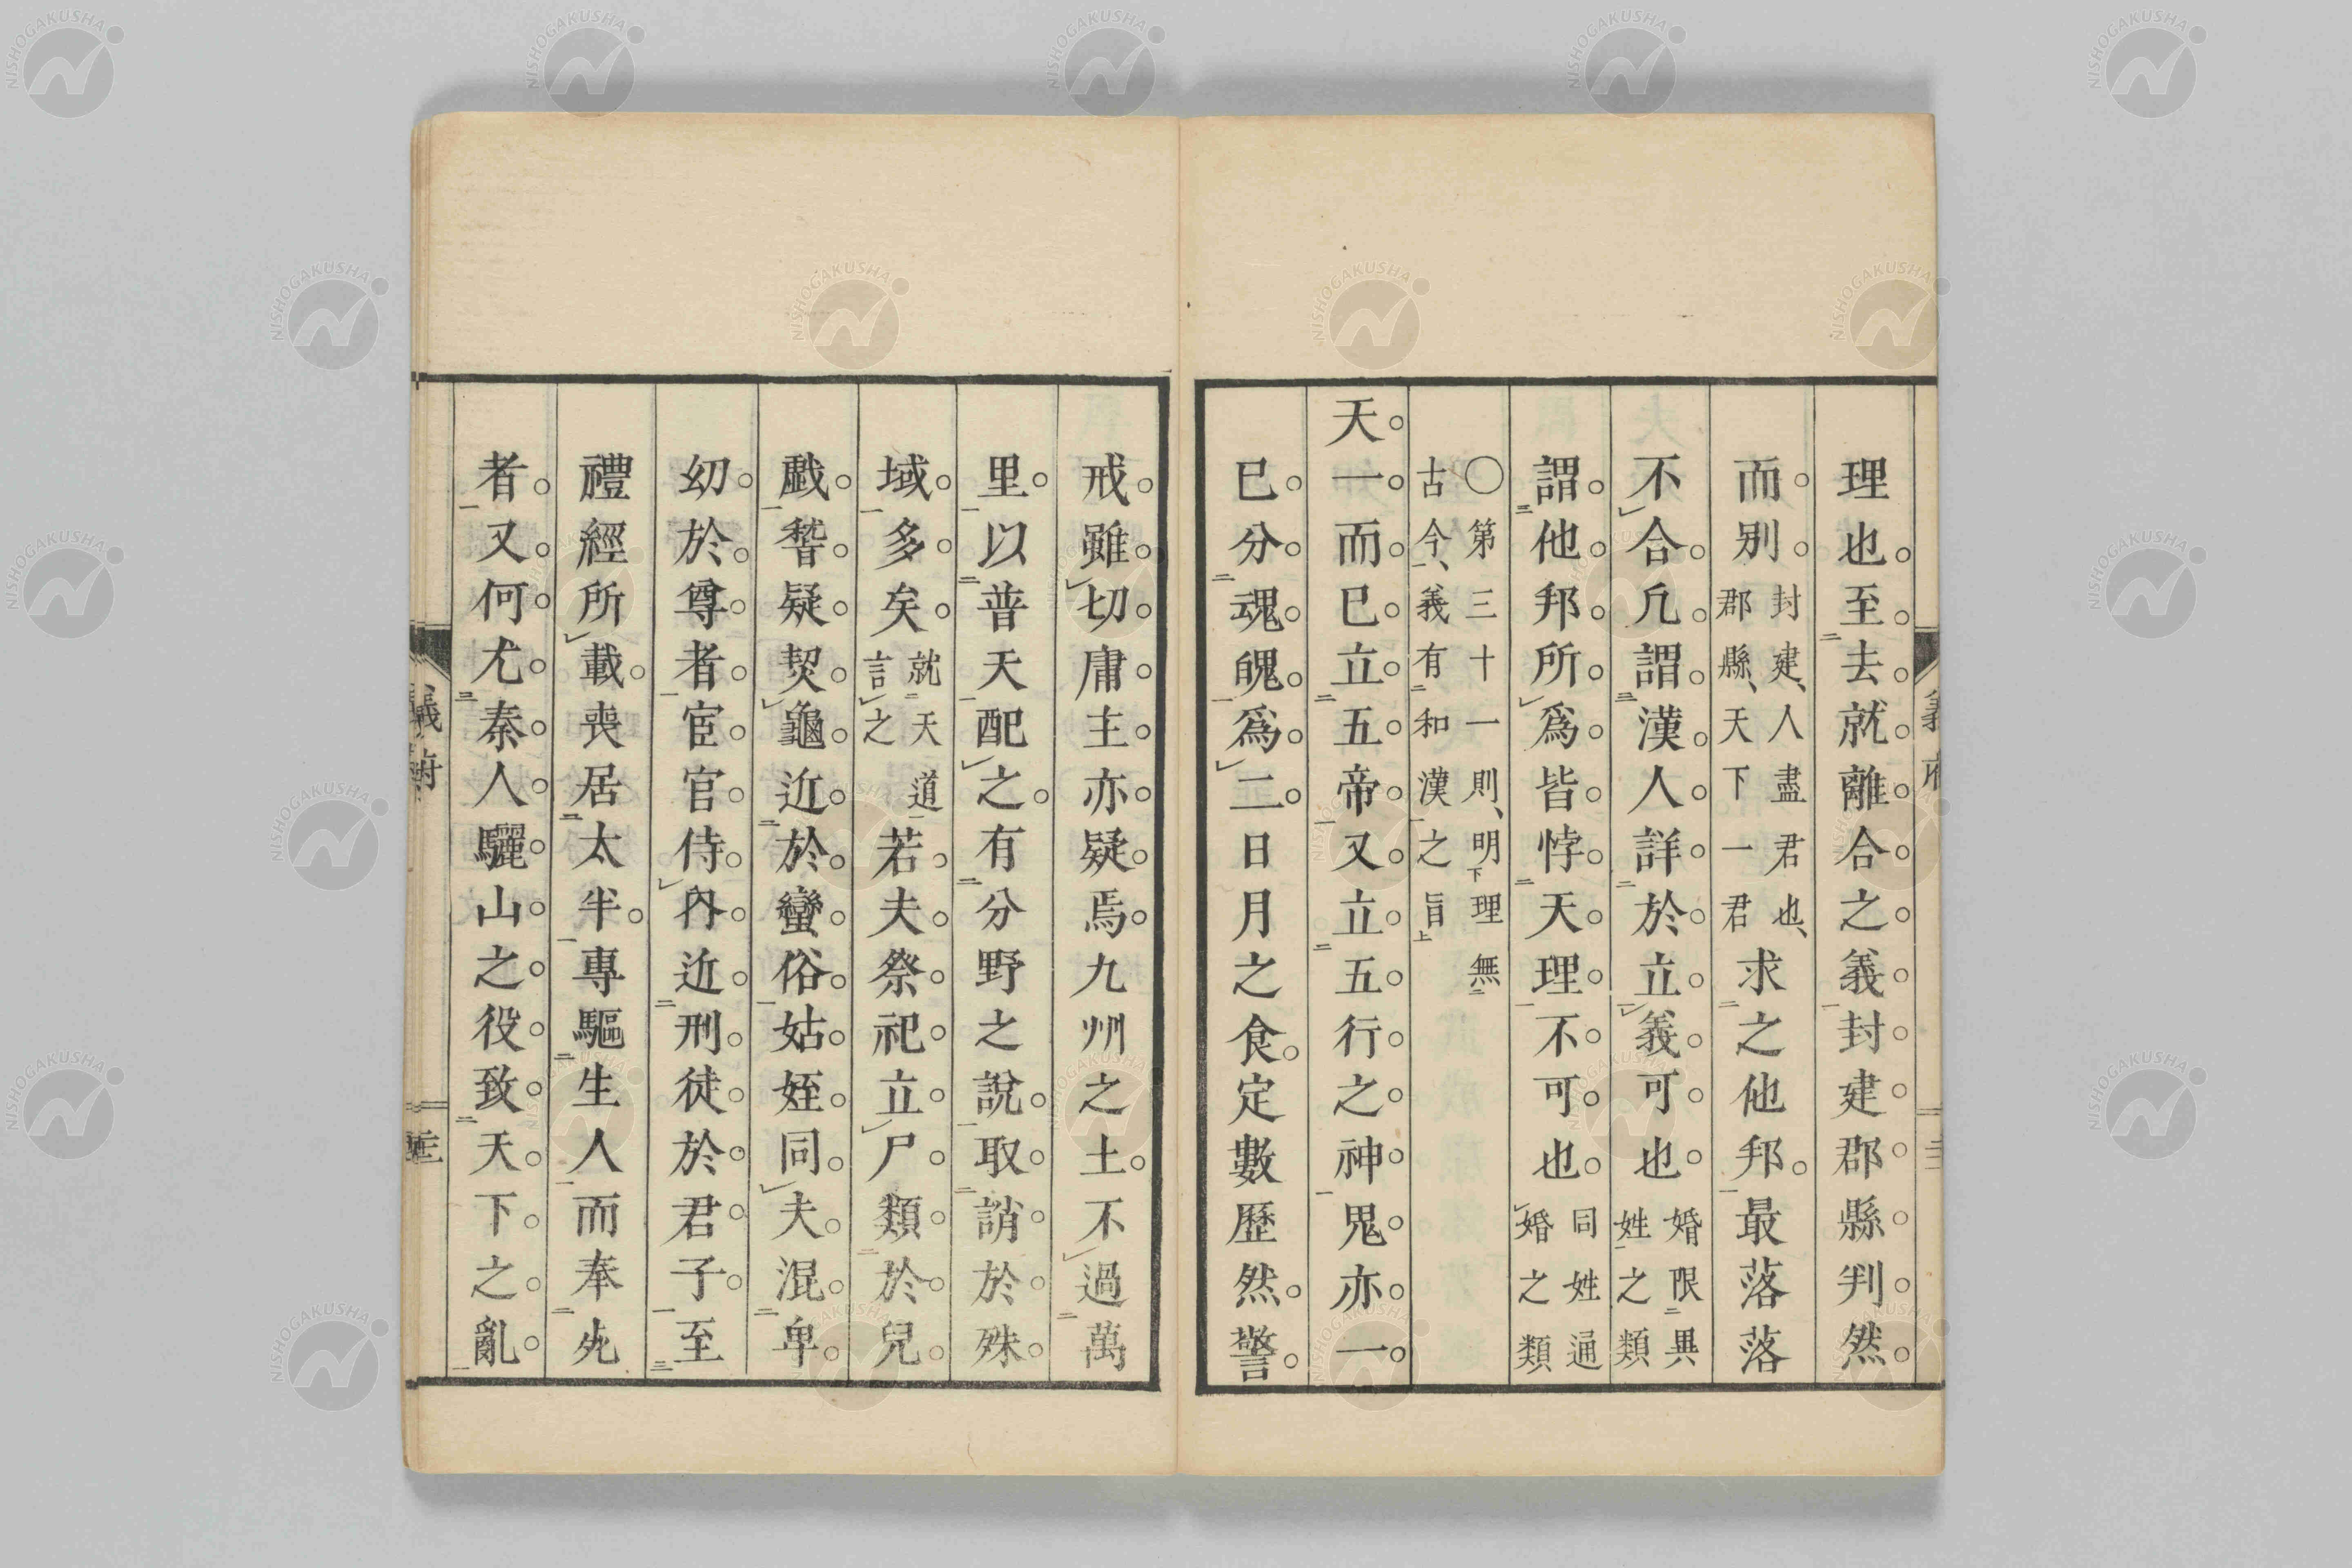 理也至去就離合之義封建郡縣判然
而別封建、人盡君也、郡縣、天下一君求之他邦最落落
不合凡謂漢人詳於立義可也婚限異姓之類
謂他邦所爲皆悖天理不可也同姓通婚之類
〇第三十一則、明理無古今、義有和漢之旨
天一而已立五帝又立五行之神鬼亦一
已分魂魄爲二日月之食定數歷然警
戒雖切庸主亦疑焉九州之土不過萬
里以普天配之有分野之說取誚於殊
域多矣就天道言之若夫祭祀立尸類於兒
戲䅲疑契龜近於蠻俗姑姪同夫混卑
幼於尊者宦官侍內近刑徒於君子至
禮經所載喪居太半專驅生人而奉死
者又何尤秦人驪山之役致天下之亂
義府
NISHOGAKUSHA